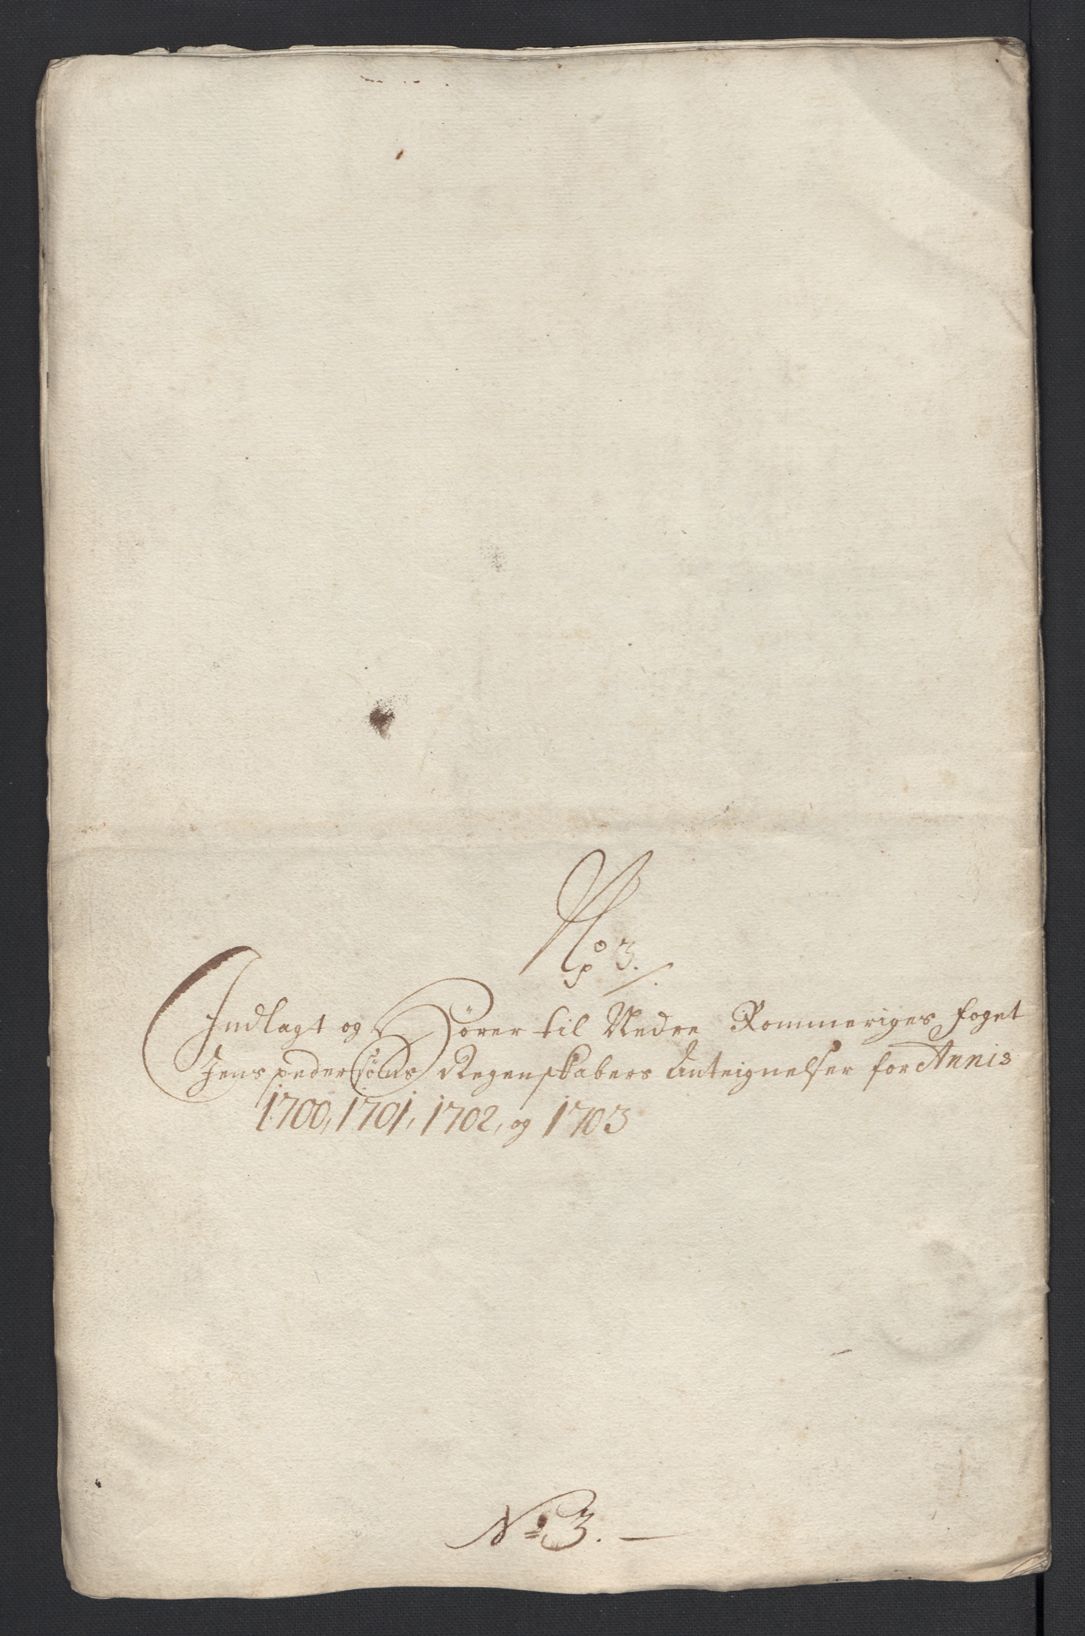 No 3.
Indlagt og Hörer til Nedre Rommeriges foget
Jens pedersöns Regenskabers Anteignelser for Annis
1700, 1701, 1702, og 1703
No 3.